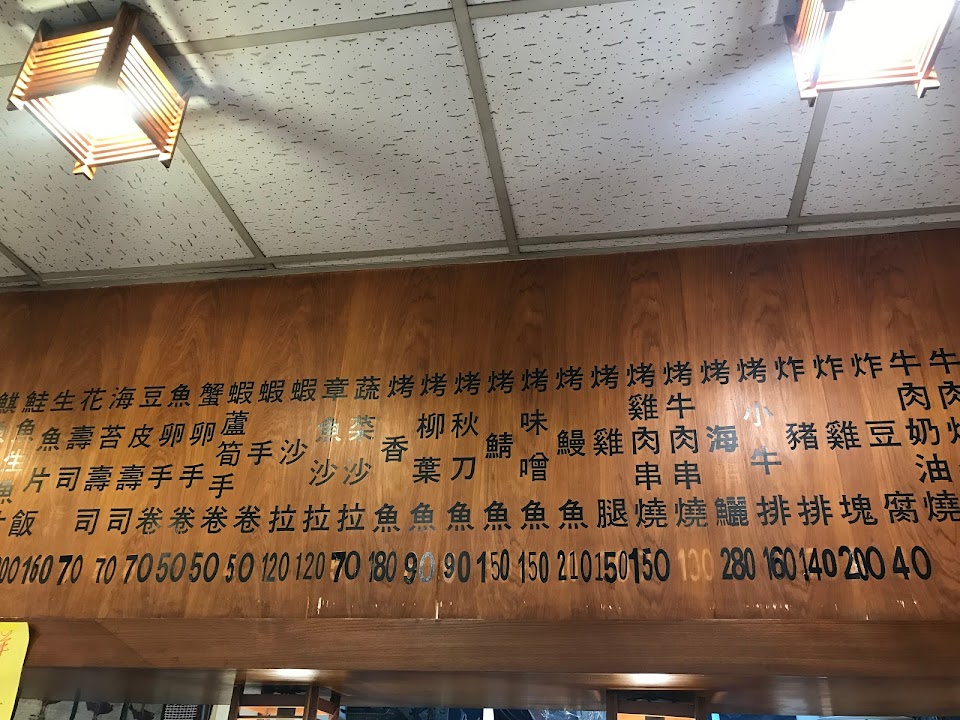 牛肉奶油燒
炸豆腐
炸雞塊
炸豬排
烤小牛排
烤海鱺
烤牛肉串燒
烤雞肉串燒
烤雞腿
烤鰻魚
烤味噌魚
烤鯖魚
烤秋刀魚
烤柳葉魚
烤香魚
蔬菜沙拉
章魚沙拉
蝦沙拉
蝦手卷
蝦蘆筍手卷
蟹卵手卷
魚卵手卷
豆皮壽司
海苔壽司
花壽司
生魚片飯
鮭魚生魚片
160 70 70 70 50 50 50 120 120 70 180 90 90 150 150 210 150 150 130 280 160 140 200 40